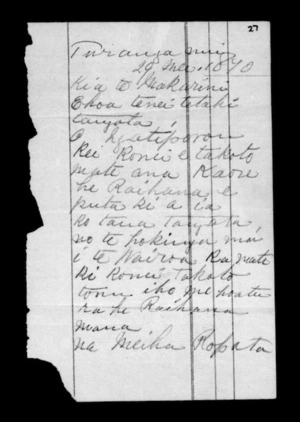 27
Turanganui
29 Mei 1870
Kia te Makarini
E hoa tenei tetahi
tangata
O Ngatiporou
Kei Konei e takoto
mate ana Kaore
he Raihana e
puta ki a ia
Ko taua Tangata
no te hokinga mai
i te Wairoa Ka mate
Ki Konei, Takoto
tonu iho me hoatu
ra he Raihana
mona
na Meiha Ropata